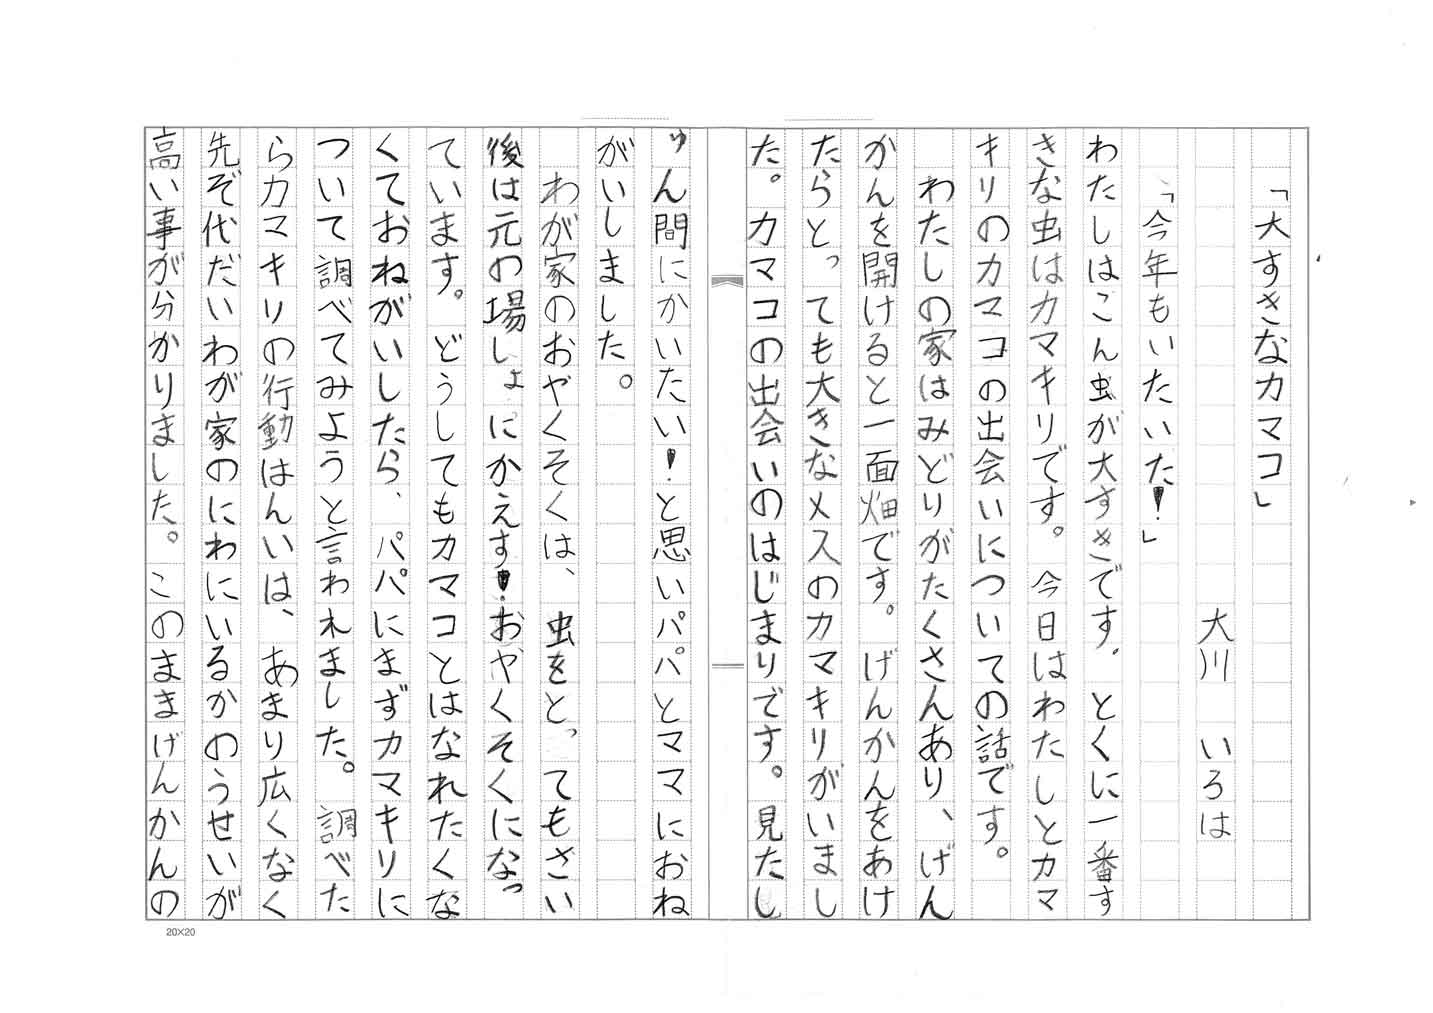 「大すきなカマコ」
大川 いろは
「今年もいたいた！」
わたしはこん虫が大すきです。とくに一番す
きな虫はカマキリです。今日はわたしとカマ
キリのカマコの出会いについての話です。
わたしの家はみどりがたくさんあり、げん
かんを開けると一面畑です。げんかんをあけ
たらとっても大きなメスのカマキリがいまし
た。カマコの出会いのはじまりです。見たし
ゅん間にかいたい！と思いパパとママにおね
がいしました。
わが家のおやくそくは、虫をとってもさい
後は元の場しょにかえす！おやくそくになっ
ています。どうしてもカマコとはなれたくな
くておねがいしたら、パパにまずカマキリに
ついて調べてみようと言われました。調べた
らカマキリの行動はんいは、あまり広くなく
先ぞ代だいわが家のにわにいるかのうせいが
高い事が分かりました。このままげんかんの
20×20